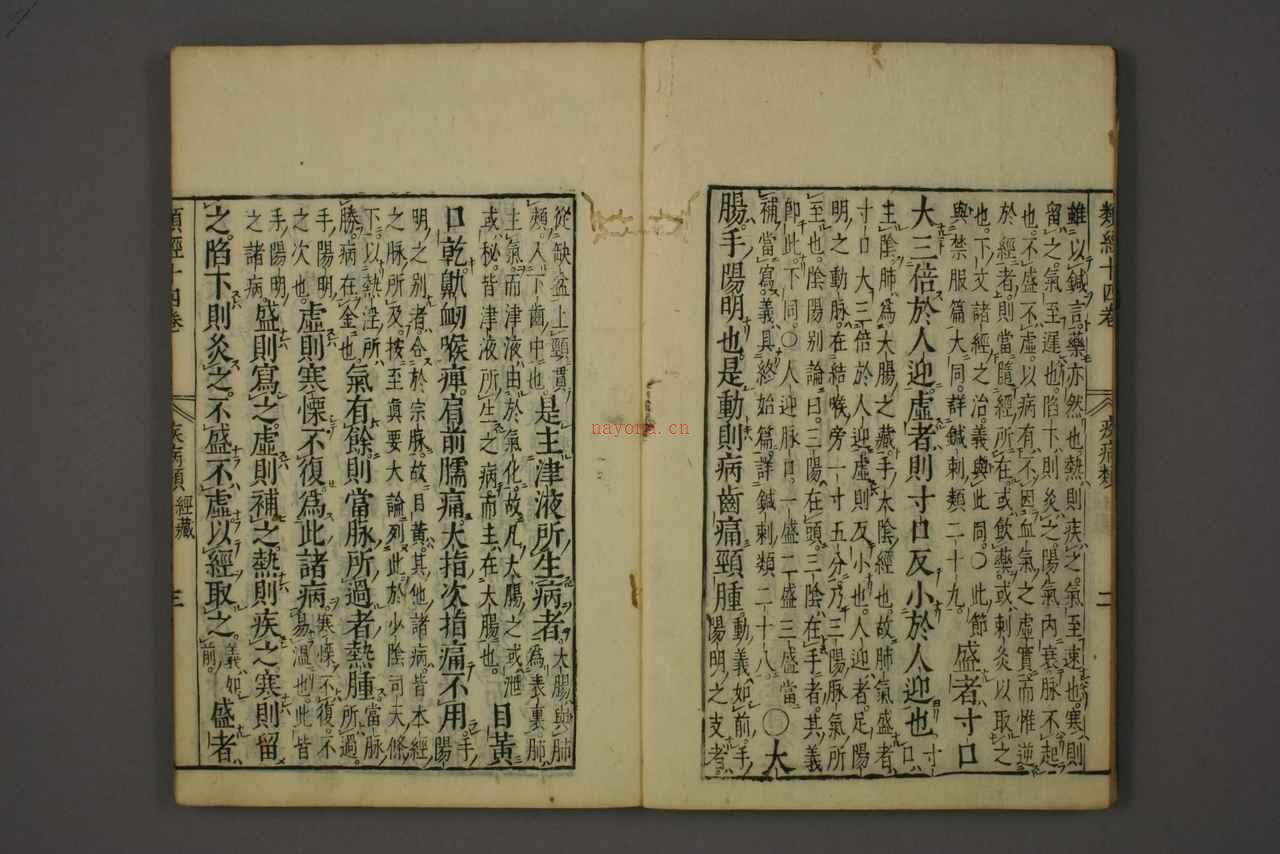 類經十四卷 疾病類 二
雖以鍼言藥亦然也熱則疾之氣至速也寒則
留之氣至遲也陷下則灸之陽氣內衰脉不起
也不盛不虛以病有不因血氣之虛實而惟逆
於經者則當隨經所在或飲藥或刺灸以取之
也下文諸經之治義與此同○此節
與禁服篇大同詳鍼刺類二十九
盛者寸口
大三倍於人迎虛者則寸口反小於人迎也
寸
口
主陰肺爲大腸之藏手太陰經也故肺氣盛者
寸口大三倍於人迎虛則反小也人迎者足陽
明之動脉在結喉旁一寸五分乃三陽脉氣所
至也陰陽别論曰三陽在頭三陰在手者其義
即此下同○人迎脉口一盛二盛三盛當
補當寫義具終始篇詳鍼刺類二十八
○大
腸手陽明也是動則病齒痛頸腫
動義如前手
陽明之支者
從缺盆上頸貫
頰入下齒中也
是主津液所生病者
大腸與肺
爲表裏肺
主氣而津液由於氣化故凡大腸之或泄
或秘皆津液所生之病而主在大腸也
目黃
口乾鼽衂喉痺肩前臑痛大指次指痛不用
手
陽
明之别者合於宗脉故目黃其他諸病皆本經
之脉所及按至眞要大論列此於少陰司天條
下以熱淫所
勝病在金也
氣有餘則當脉所過者熱腫
當脉
所過
手陽明
之次也
虛則寒慄不復爲此諸病
寒慄不復不
易溫也此皆
手陽明
之諸病
盛則寫之虛則補之熱則疾之寒則留
之陷下則灸之不盛不虛以經取之
義如
前
盛者
類經十四卷 疾病類 經藏 三
nayona.cn